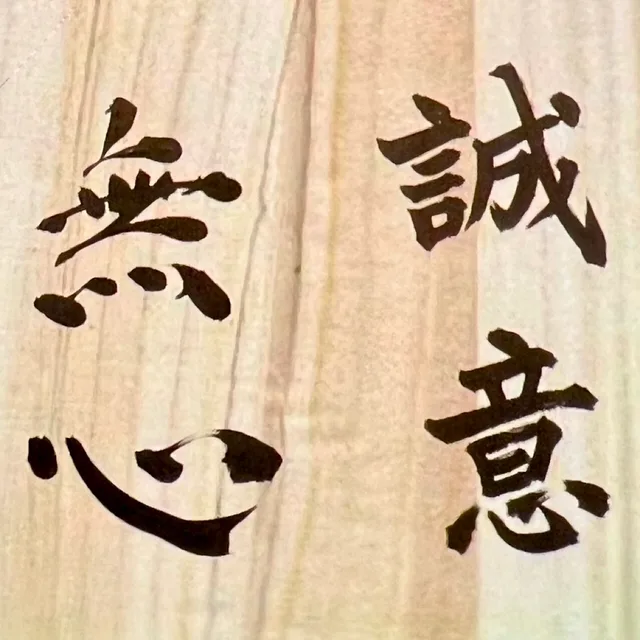 誠意
無心